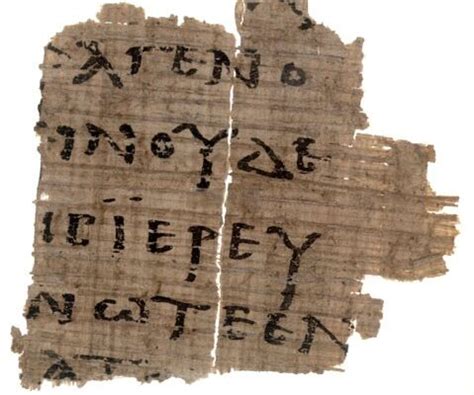 ΑΓΕΝΟ
ΙΝΟΥΔΕ
ΙϹΪΕΡΕΥ
ΝωΤΕΕΝ